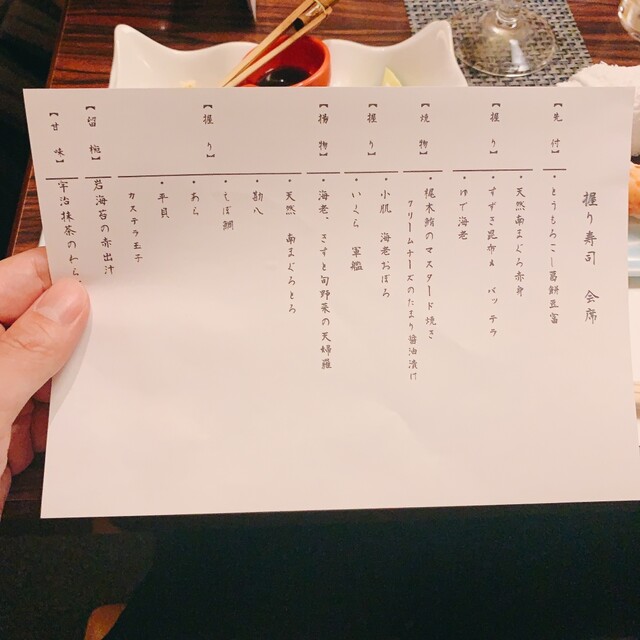 握り寿司 会席
【先付】
・とうもろこし葛餅豆富
【握り】
・天然南まぐろ赤身
・すずき昆布〆 バッテラ
・ゆで海老
【焼物】
・梶木鮪のマスタード焼き
クリームチーズのたまり醤油漬け
【握り】
・小肌 海老おぼろ
・いくら 軍艦
【揚物】
・海老、きすと旬野菜の天婦羅
【握り】
・天然 南まぐろとろ
・勘八
・えぼ鯛
・あら
・平貝
カステラ玉子
【留椀】
岩海苔の赤出汁
【甘味】
宇治抹茶のわら